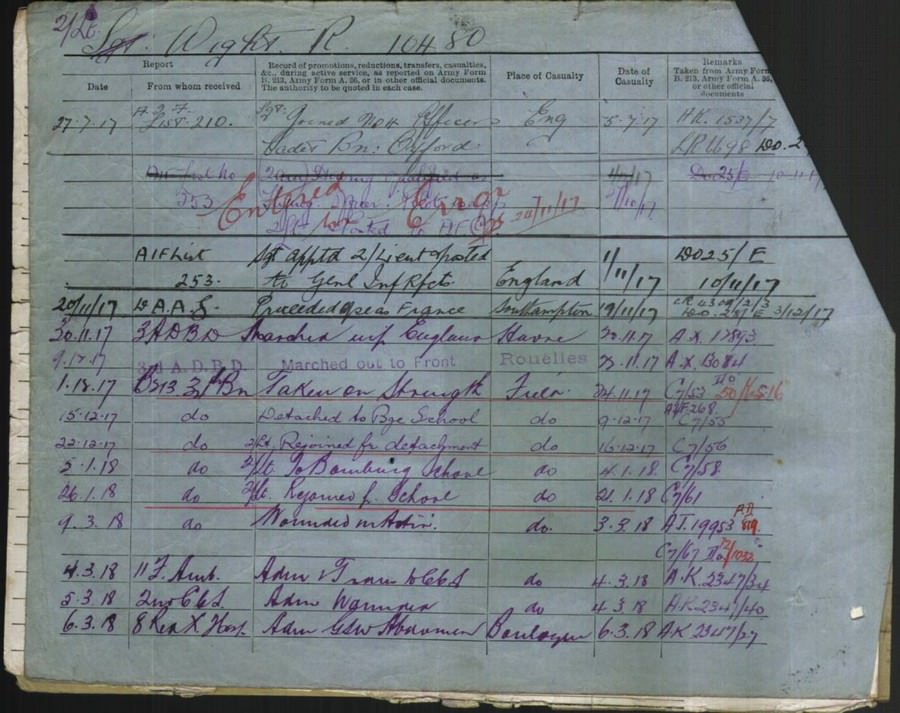 2/Lt.
Sgt. Wight. R. 10480
Report
Date
From whom received
Record of promotions, reductions, transfers, casualties,
&c., during active service, as reported on Army Form
B. 213, Army Form A. 36, or in other official documents.
The authority to be quoted in each case.
Place of Casualty
Date of
Casualty
Remarks
Taken from Army Form
B. 213, Army Form A. 36,
or other official
documents
27.7.17 List 210. Sgt. Joined No 4 Officers Eng 5.7.17 A.K. 1537/7
Cadet Bn: Oxford
353
Entered Error 24/11/17
AIF List Sgt apptd 2/Lieut posted 1/ DO 25/E
253. to Genl Inf Rfcts England 11/17 10/11/17
20/11/17 D.A.A.G. Proceeded o/seas France Southampton 19/11/17 3/12/17
30.11.17 3 ADBD Marched in f England Havre 20.11.17 A.X. 17893
3rd A.D.B.D. Marched out to Front Rouelles 23.11.17 A.X. 13084
1.12.17 Bn Taken on Strength Field 24.11.17 C7/53
15.12.17 do Detached to Bge School do 9.12.17 C7/55
22.12.17 do 2/Lt. Rejoined fr detachment do 16.12.17 C7/56
5.1.18 do 2/Lt. To Bombing School do 4.1.18 C7/58
26.1.18 do 2/Lt. Rejoined f. School do 21.1.18 C7/61
9.3.18 do Wounded in Actn. do. 3.3.18 A.J. 19953
C7/67
4.3.18 11 F. Amb. Adm & Trans to CCS do 4.3.18 A.K. 2347/34
5.3.18 2nd CCS Adm Wounded do 4.3.18 A.K. 2347/40
6.3.18 8 Red X Hosp. Adm GSW Abdomen Boulogne 6.3.18 A.K. 2347/27